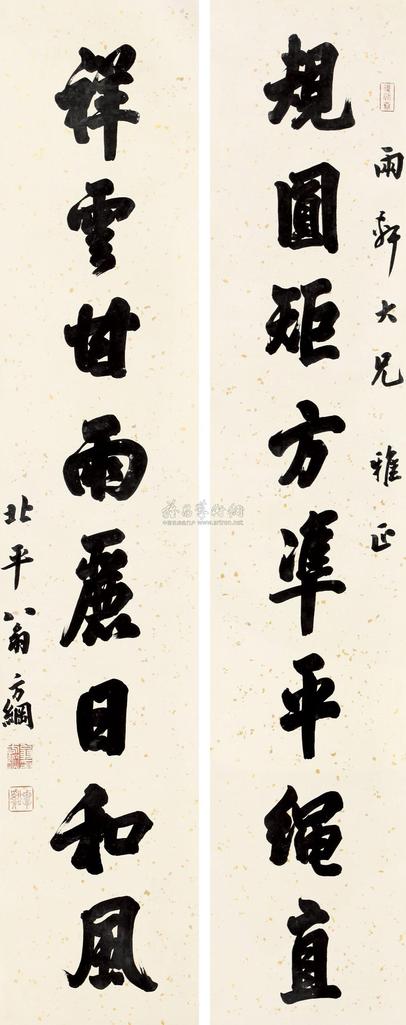 雨軒大兄 雅正
規圓矩方準平繩直
祥雲甘雨麗日和風
北平翁方綱
www.artron.net